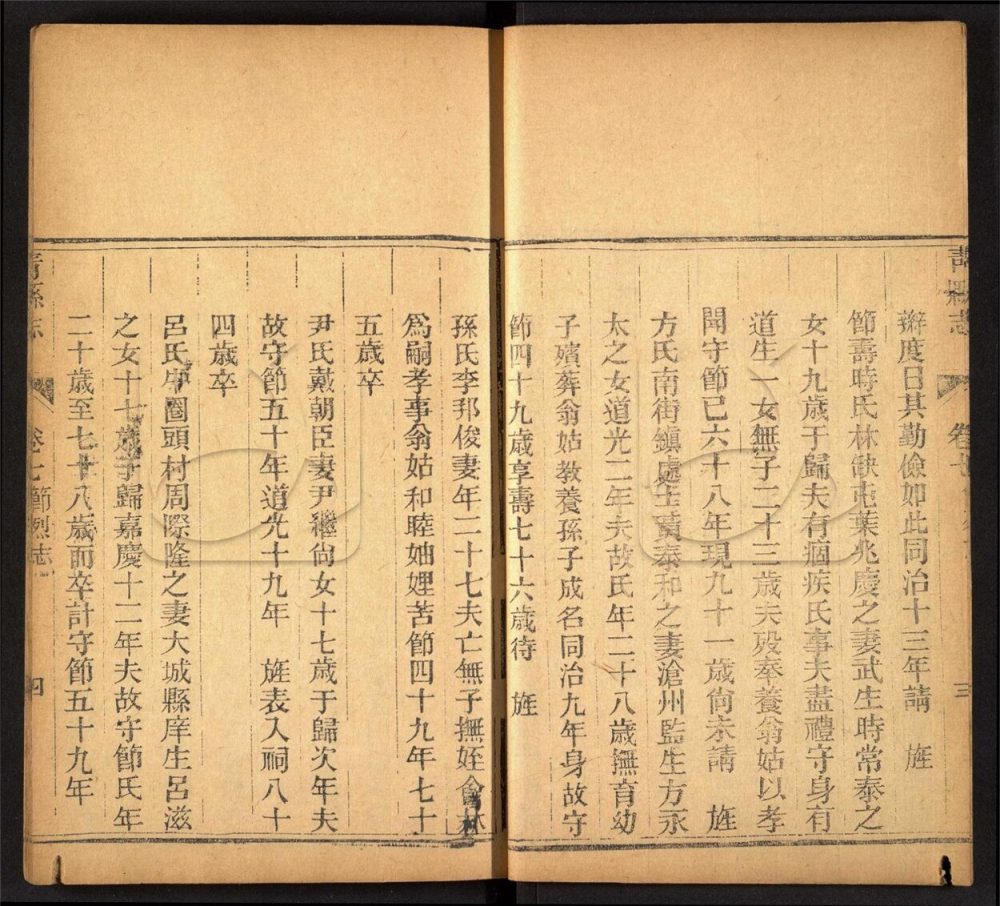 縣志
卷七
三
辦度日其勤儉如此同治十三年請 旌
節壽時氏林缺屯葉兆慶之妻武生時常泰之
女十九歲于歸夫有痼疾氏事夫盡禮守身有
道生一女無子二十三歲夫歿奉養翁姑以孝
聞守節已六十八年現九十一歲尙未請 旌
方氏南街鎭處士賈泰和之妻滄州監生方永
太之女道光二年夫故氏年二十八歲撫育幼
子殯葬翁姑教養孫子成名同治九年身故守
節四十九歲享壽七十六歲待 旌
孫氏李邦俊妻年二十七夫亡無子撫姪
爲嗣孝事翁姑和睦妯娌苦節四十九年七十
五歲卒
尹氏戴朝臣妻尹繼尙女十七歲于歸次年夫
故守節五十年道光十九年 旌表入祠八十
四歲卒
呂氏 圈頭村周際隆之妻大城縣庠生呂滋
之女十七歲于歸嘉慶十二年夫故守節氏年
二十歲至七十八歲而卒計守節五十九年
靑縣志
卷七節烈志
四